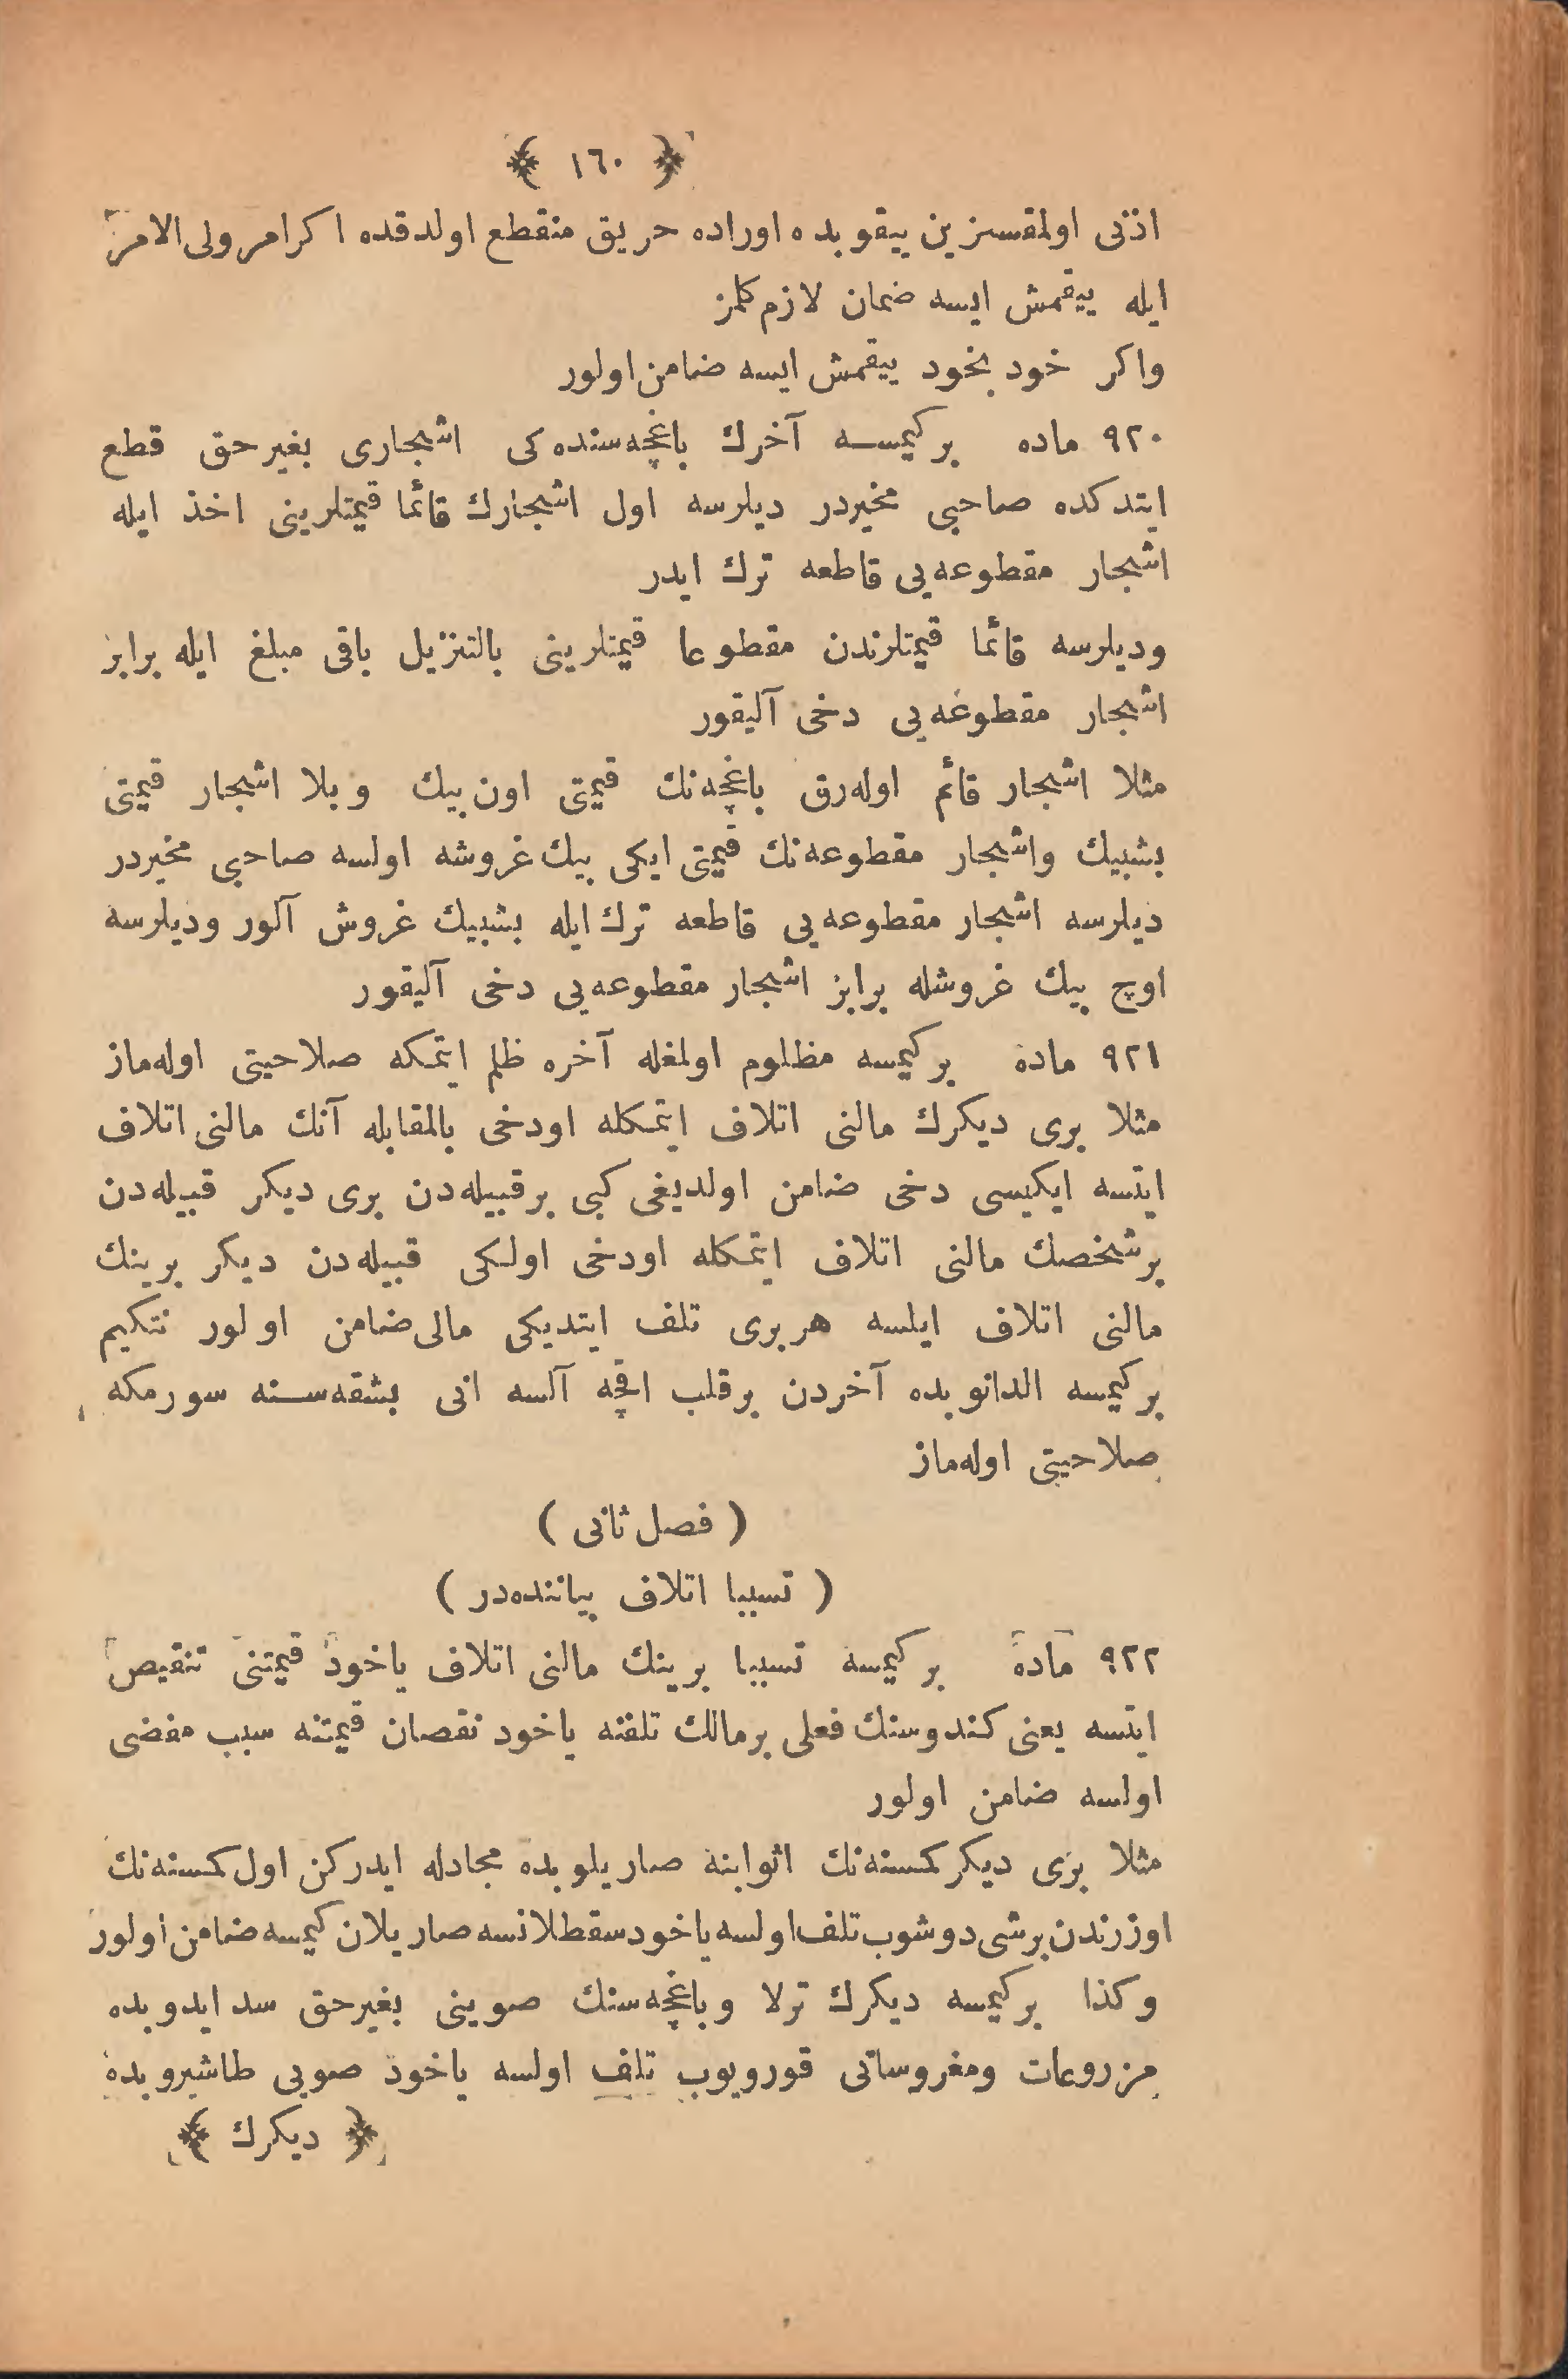 ﴿ ١٦٠ ﴾
اذنى اولمقسزين ييقوبده اوراده حريق منقطع اولدقده اكر امر ولى الامر
ايله ييقمش ايسه ضمان لازم كلمز
واكر خود بخود ييقمش ايسه ضامن اولور
٩٢٠ ماده بركيمسه آخرك باغچه‌سنده‌كى اشجارى بغير حق قطع
ايتدكده صاحبى مخيردر ديلرسه اول اشجارك قائما قيمتلرينى اخذ ايله
اشجار مقطوعه‌يى قاطعه ترك ايدر
وديلرسه قائما قيمتلرندن مقطوعا قيمتلرينى بالتنزيل باقى مبلغ ايله برابر
اشجار مقطوعه‌يى دخى آليقور
مثلا اشجار قائم اوله‌رق باغچه‌نك قيمتى اون بيك وبلا اشجار قيمتى
بشبيك واشجار مقطوعه‌نك قيمتى ايكى بيك غروشه اولسه صاحبى مخيردر
ديلرسه اشجار مقطوعه‌يى قاطعه ترك ايله بشبيك غروش آلور وديلرسه
اوچ بيك غروشله برابر اشجار مقطوعه‌يى دخى آليقور
٩٢١ ماده بركيمسه مظلوم اولمغله آخره ظلم ايتمكه صلاحيتى اوله‌ماز
مثلا برى ديكرك مالنى اتلاف ايتمكله اودخى بالمقابله آنك مالنى اتلاف
ايتسه ايكيسى دخى ضامن اولديغى كبى برقبيله‌دن برى ديكر قبيله‌دن
برشخصك مالنى اتلاف ايتمكله اودخى اولكى قبيله‌دن ديكر برينك
مالنى اتلاف ايلسه هربرى تلف ايتديكى مالى ضامن اولور نتكيم
بركيمسه الدانوبده آخردن برقلب اقچه آلسه انى بشقه‌سنه سورمكه
صلاحيتى اوله‌ماز
( فصل ثانى )
( تسببا اتلاف بياننده‌در )
٩٢٢ ماده بركيمسه تسببا برينك مالنى اتلاف ياخود قيمتنى تنقيص
ايتسه يعنى كندوسنك فعلى برمالك تلفنه ياخود نقصان قيمتنه سبب مفضى
اولسه ضامن اولور
مثلا برى ديكر كمسنه‌نك اثوابنه صاريلوبده مجادله ايدركن اول كمسنه‌نك
اوزرندن برشى دوشوب تلف اولسه ياخود سقطلانسه صاريلان كيمسه ضامن اولور
وكذا بركيمسه ديكرك ترلا وباغچه‌سنك صوينى بغيرحق سد ايدوبده
مزروعات ومغروساتى قورويوب تلف اولسه ياخود صويى طاشيروبده
﴿ ديكرك ﴾